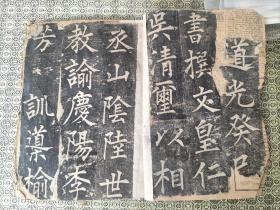 道光癸巳
書撰文皇仁
吳清璽以相
丞山陰陸世
教諭慶陽李
芳訓導榆